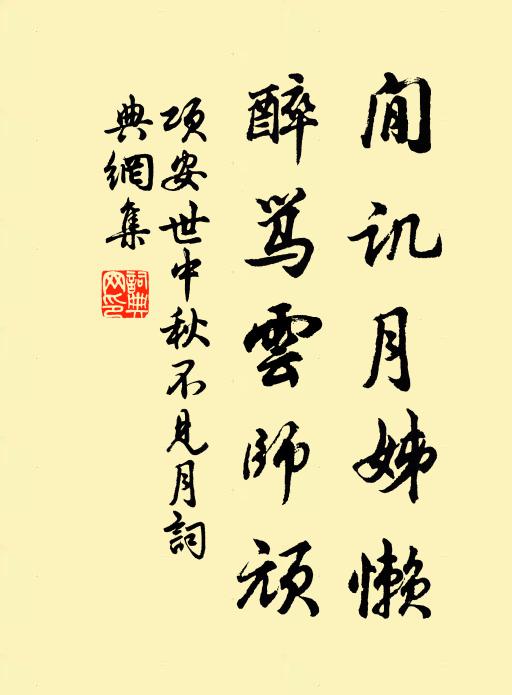 閒讥月姊懒
醉骂雲師頑
項安世中秋不見月詞
典網集
詞典网印